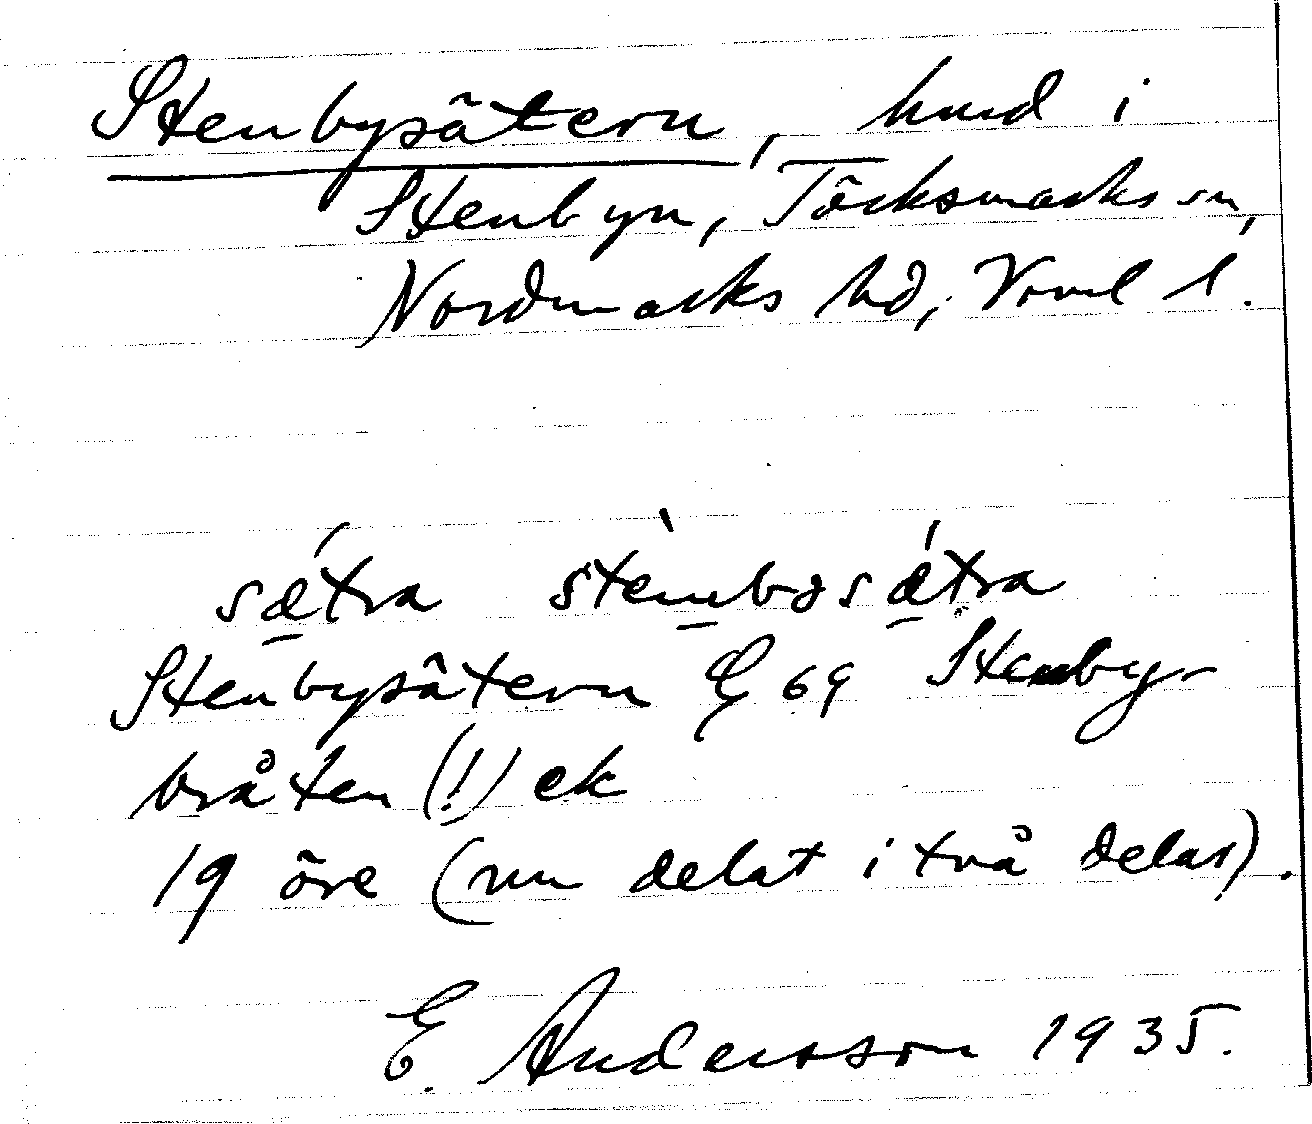 Stenbysätern, hmd i
Stenbyn, Töcksmarks sn,
Nordmarks hd, Vrml l.
sǽtra stèmbəsǽtra
Stenbysätern G 69 Stenby-
bråten (!) ek
19 öre (nu delat i två delar).
E. Andersson 1935.